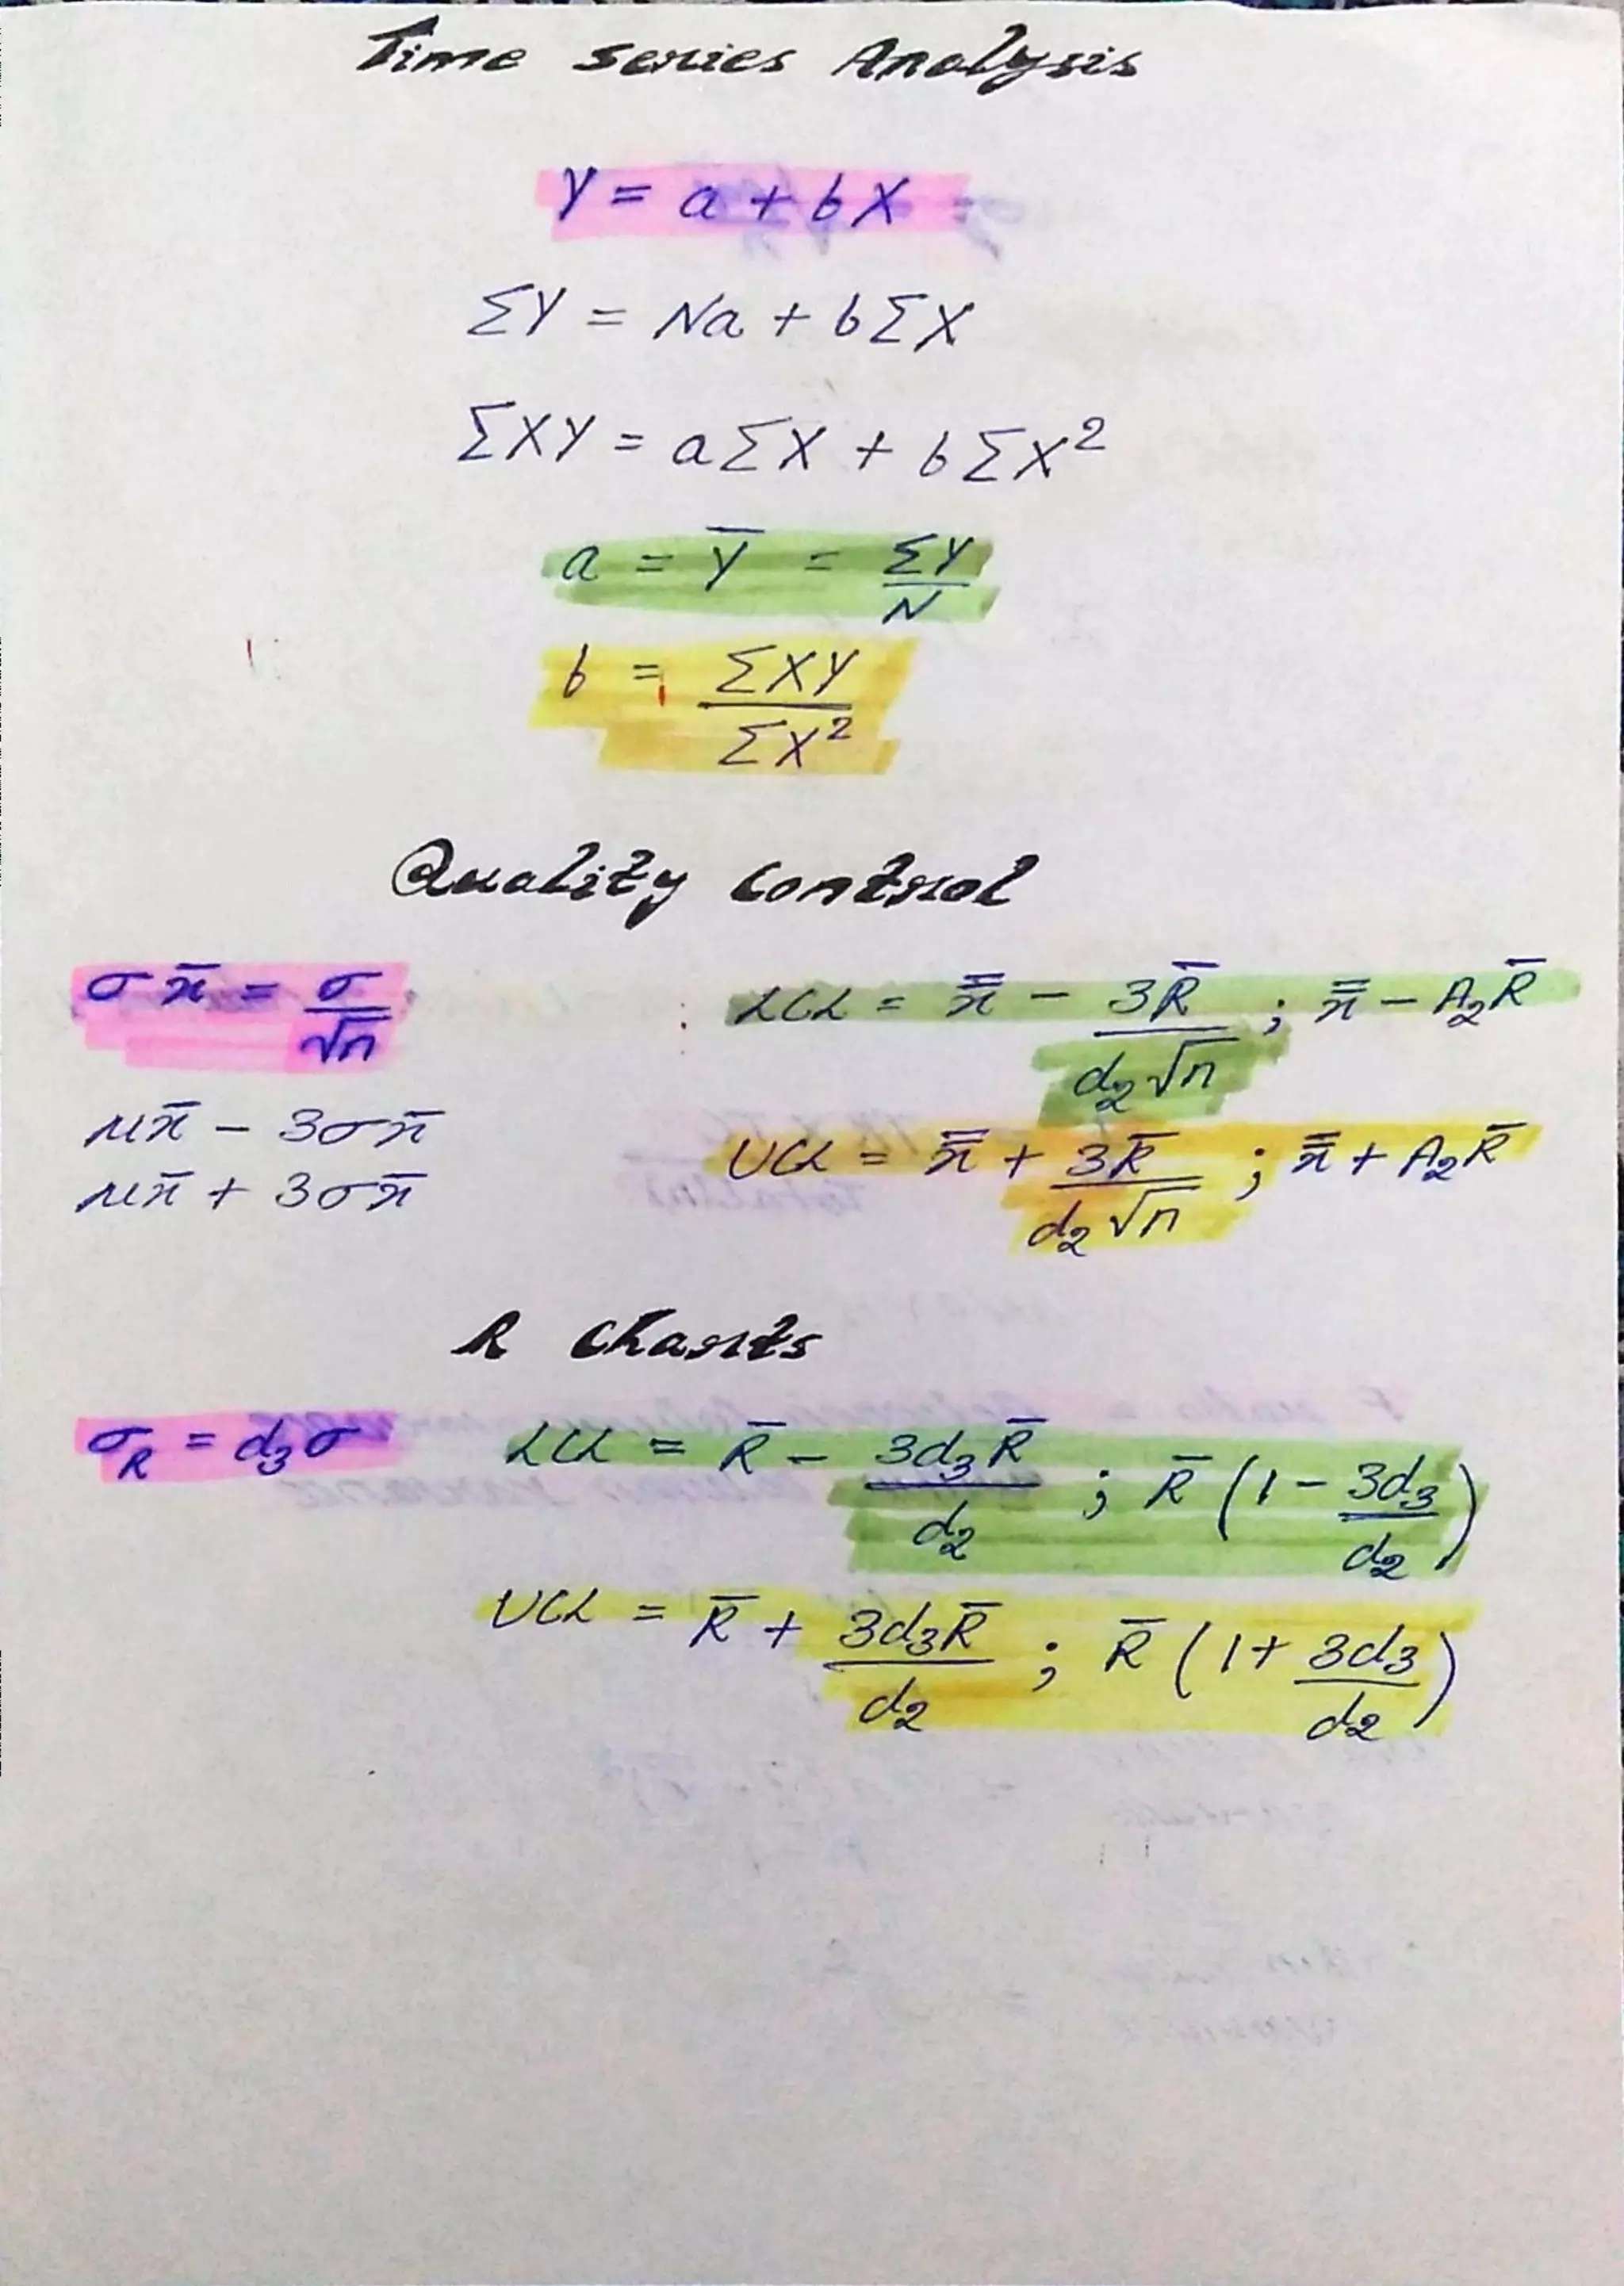 Time series Analysis
Y = a + bX
ΣY = Na + bΣX
ΣXY = aΣX + bΣX²
a = Y̅ = ΣY/N
b = ΣXY/ΣX²
Quality Control
σx̄ = σ/√n
LCL = x̿ − 3R̅/d₂√n ; x̿ − A₂R̅
μx̄ − 3σx̄
UCL = x̿ + 3R̅/d₂√n ; x̿ + A₂R̅
μx̄ + 3σx̄
R Charts
σ_R = d₃σ
LCL = R̅ − 3d₃R̅/d₂ ; R̅ (1 − 3d₃/d₂)
UCL = R̅ + 3d₃R̅/d₂ ; R̅ (1 + 3d₃/d₂)